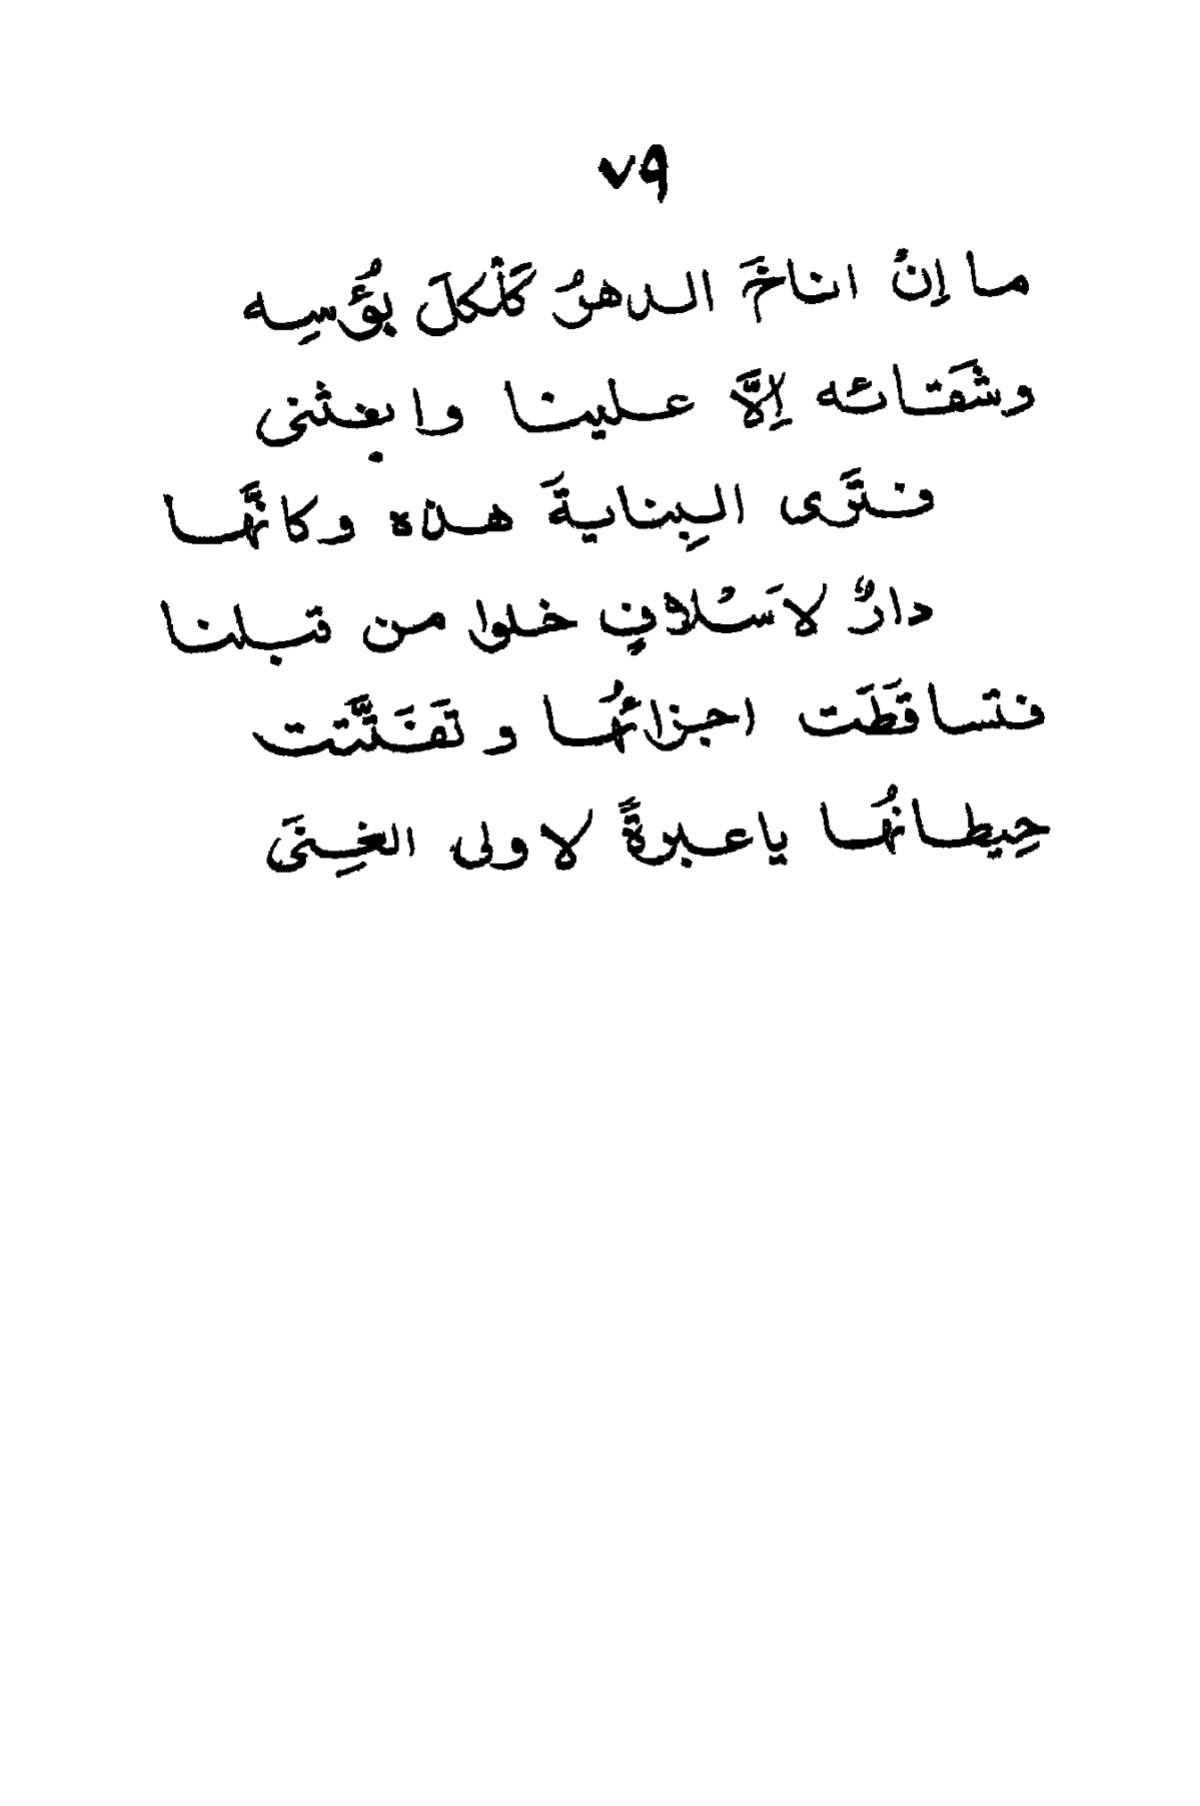 ٧٩
ما إنْ اناخَ الدهرُ كَلْكلَ بُؤَسِه
وشَقائه إلَّا علينا وابغثنى
فترَى البِنايةَ هذه وكانَّها
دارٌ لاسْلافٍ خلوا من قبلنا
فتساقَطَت اجزائهُا وتفَتَّتت
حِيطانهُا ياعبرةً لاولى الغِنىَ